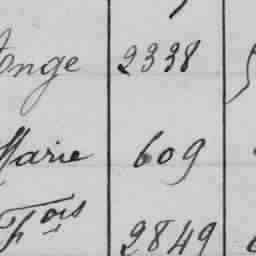 onge 2338
Marie 609
Fois 2849